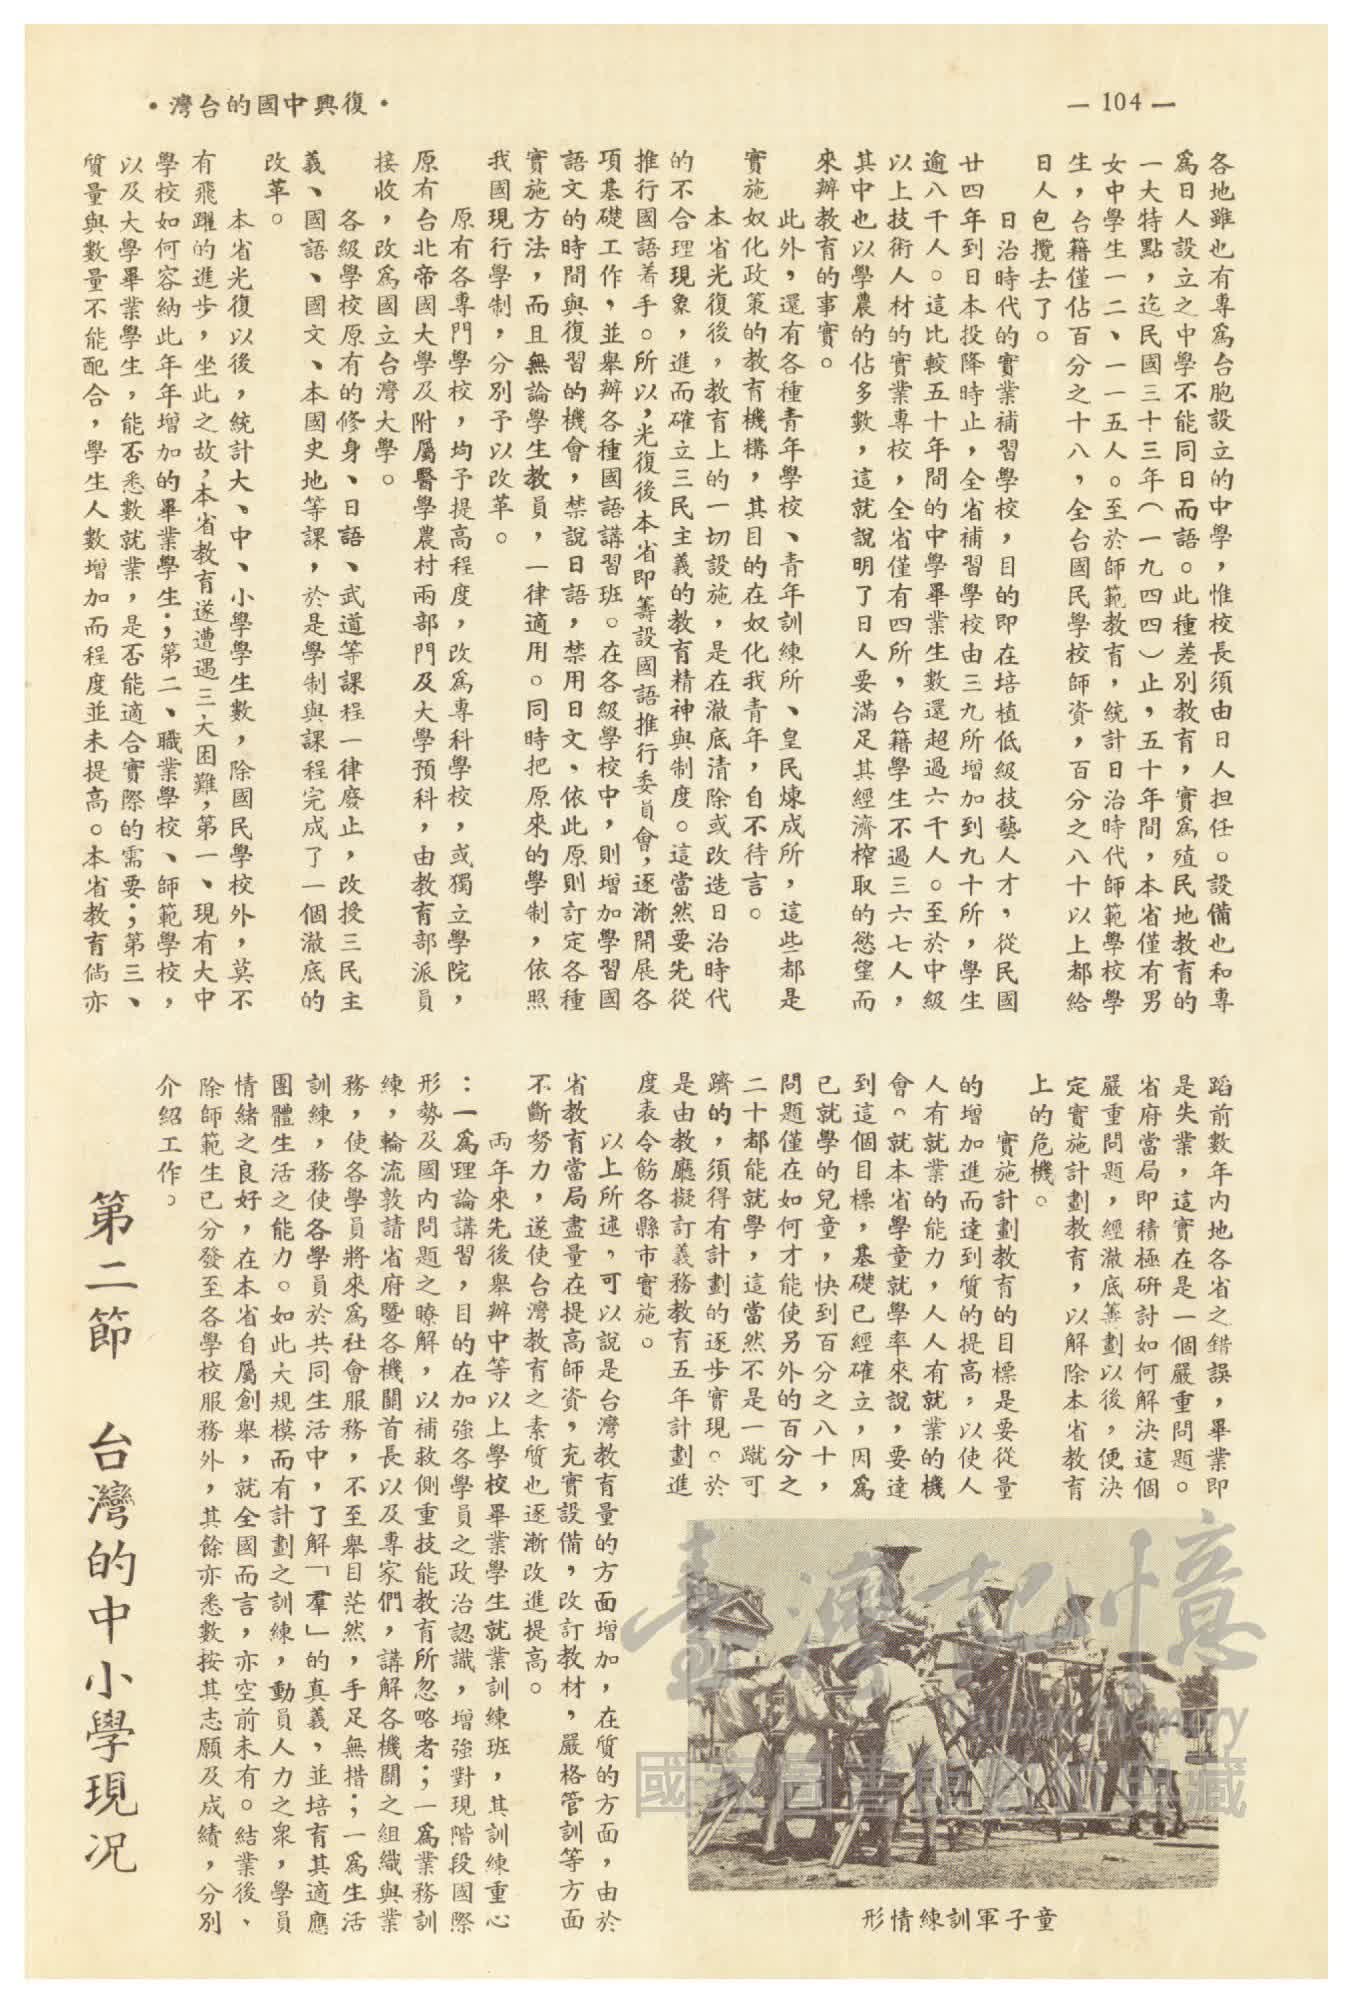 — 104 —
•灣台的國中興復•
各地雖也有專爲台胞設立的中學，惟校長須由日人担任。設備也和專
爲日人設立之中學不能同日而語。此種差別教育，實爲殖民地教育的
一大特點，迄民國三十三年（一九四四）止，五十年間，本省僅有男
女中學生一二、一一五人。至於師範教育，統計日治時代師範學校學
生，台籍僅佔百分之十八，全台國民學校師資，百分之八十以上都給
日人包攬去了。
日治時代的實業補習學校，目的即在培植低級技藝人才，從民國
廿四年到日本投降時止，全省補習學校由三九所增加到九十所，學生
逾八千人。這比較五十年間的中學畢業生數還超過六千人。至於中級
以上技術人材的實業專校，全省僅有四所，台籍學生不過三六七人，
其中也以學農的佔多數，這就說明了日人要滿足其經濟榨取的慾望而
來辦教育的事實。
此外，還有各種青年學校、青年訓練所、皇民煉成所，這些都是
實施奴化政策的教育機構，其目的在奴化我青年，自不待言。
本省光復後，教育上的一切設施，是在澈底清除或改造日治時代
的不合理現象，進而確立三民主義的教育精神與制度。這當然要先從
推行國語着手。所以，光復後本省即籌設國語推行委員會，逐漸開展各
項基礎工作，並舉辦各種國語講習班。在各級學校中，則增加學習國
語文的時間與復習的機會，禁說日語，禁用日文、依此原則訂定各種
實施方法，而且無論學生教員，一律適用。同時把原來的學制，依照
我國現行學制，分別予以改革。
原有各專門學校，均予提高程度，改爲專科學校，或獨立學院，
原有台北帝國大學及附屬醫學農村兩部門及大學預科，由教育部派員
接收，改爲國立台灣大學。
各級學校原有的修身、日語、武道等課程一律廢止，改授三民主
義、國語、國文、本國史地等課，於是學制與課程完成了一個澈底的
改革。
本省光復以後，統計大、中、小學學生數，除國民學校外，莫不
有飛躍的進步，坐此之故，本省教育遂遭遇三大困難，第一、現有大中
學校如何容納此年年增加的畢業學生；第二、職業學校、師範學校，
以及大學畢業學生，能否悉數就業，是否能適合實際的需要；第三、
質量與數量不能配合，學生人數增加而程度並未提高。本省教育倘亦
蹈前數年內地各省之錯誤，畢業即
是失業，這實在是一個嚴重問題。
省府當局即積極研討如何解決這個
嚴重問題，經澈底籌劃以後，便決
定實施計劃教育，以解除本省教育
上的危機。
實施計劃教育的目標是要從量
的增加進而達到質的提高，以使人
人有就業的能力，人人有就業的機
會。就本省學童就學率來說，要達
到這個目標，基礎已經確立，因爲
已就學的兒童，快到百分之八十，
問題僅在如何才能使另外的百分之
二十都能就學，這當然不是一蹴可
躋的，須得有計劃的逐步實現。於
是由教廳擬訂義務教育五年計劃進
度表令飭各縣市實施。
以上所述，可以說是台灣教育量的方面增加，在質的方面，由於
省教育當局盡量在提高師資，充實設備，改訂教材，嚴格管訓等方面
不斷努力，遂使台灣教育之素質也逐漸改進提高。
兩年來先後舉辦中等以上學校畢業學生就業訓練班，其訓練重心
：一爲理論講習，目的在加強各學員之政治認識，增強對現階段國際
形勢及國內問題之瞭解，以補救側重技能教育所忽略者；一爲業務訓
練，輪流敦請省府暨各機關首長以及專家們，講解各機關之組織與業
務，使各學員將來爲社會服務，不至舉目茫然，手足無措；一爲生活
訓練，務使各學員於共同生活中，了解「羣」的真義，並培育其適應
團體生活之能力。如此大規模而有計劃之訓練，動員人力之衆，學員
情緒之良好，在本省自屬創舉，就全國而言，亦空前未有。結業後、
除師範生已分發至各學校服務外，其餘亦悉數按其志願及成績，分別
介紹工作。
第二節　台灣的中小學現況
形情練訓軍子童
臺灣記憶
Taiwan Memory
國家圖書館數位典藏